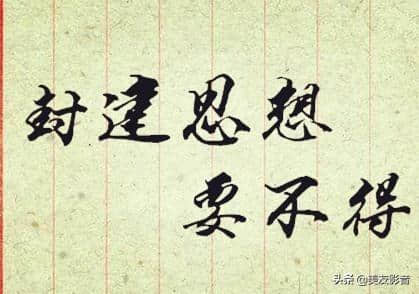 封建思想
要不得
头条 @美友影音